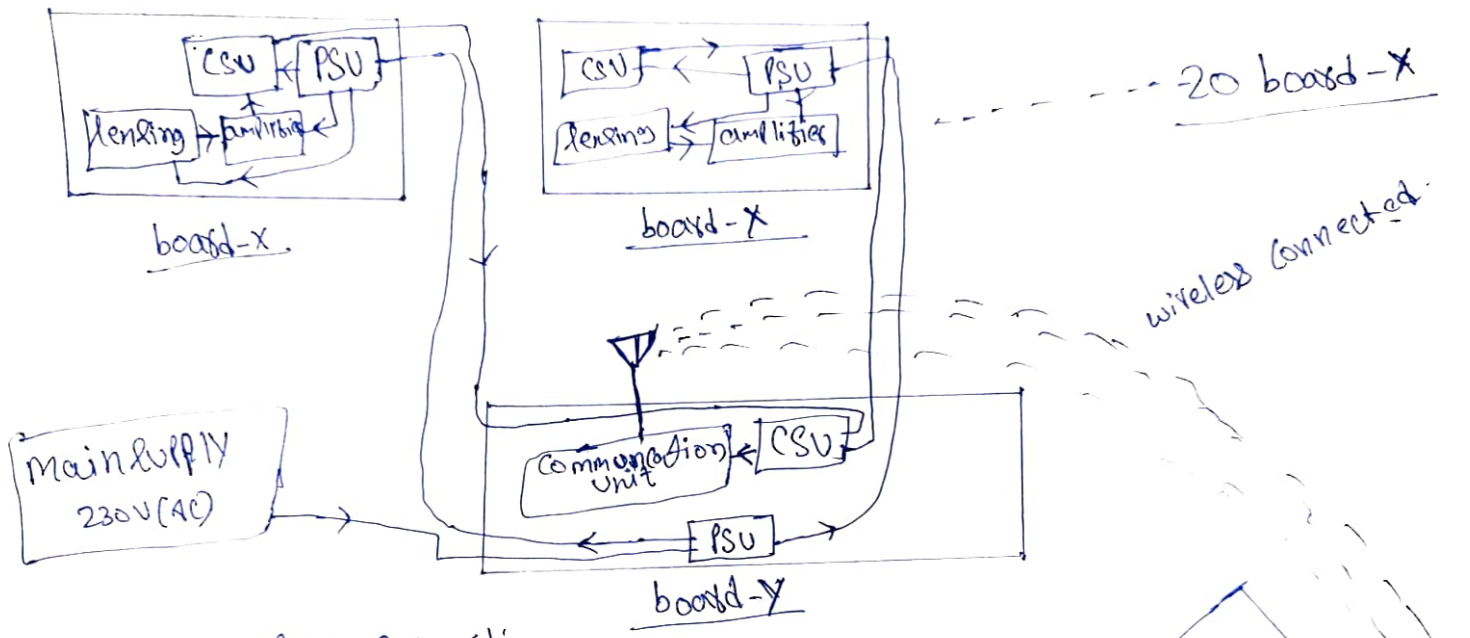 CSU
PSU
lensing
amplifier
board-X.
CSU
PSU
lensing
amplifier
board-X
20 board-X
wireless connected.
main supply
230V(AC)
communcation
unit
CSU
PSU
board-Y